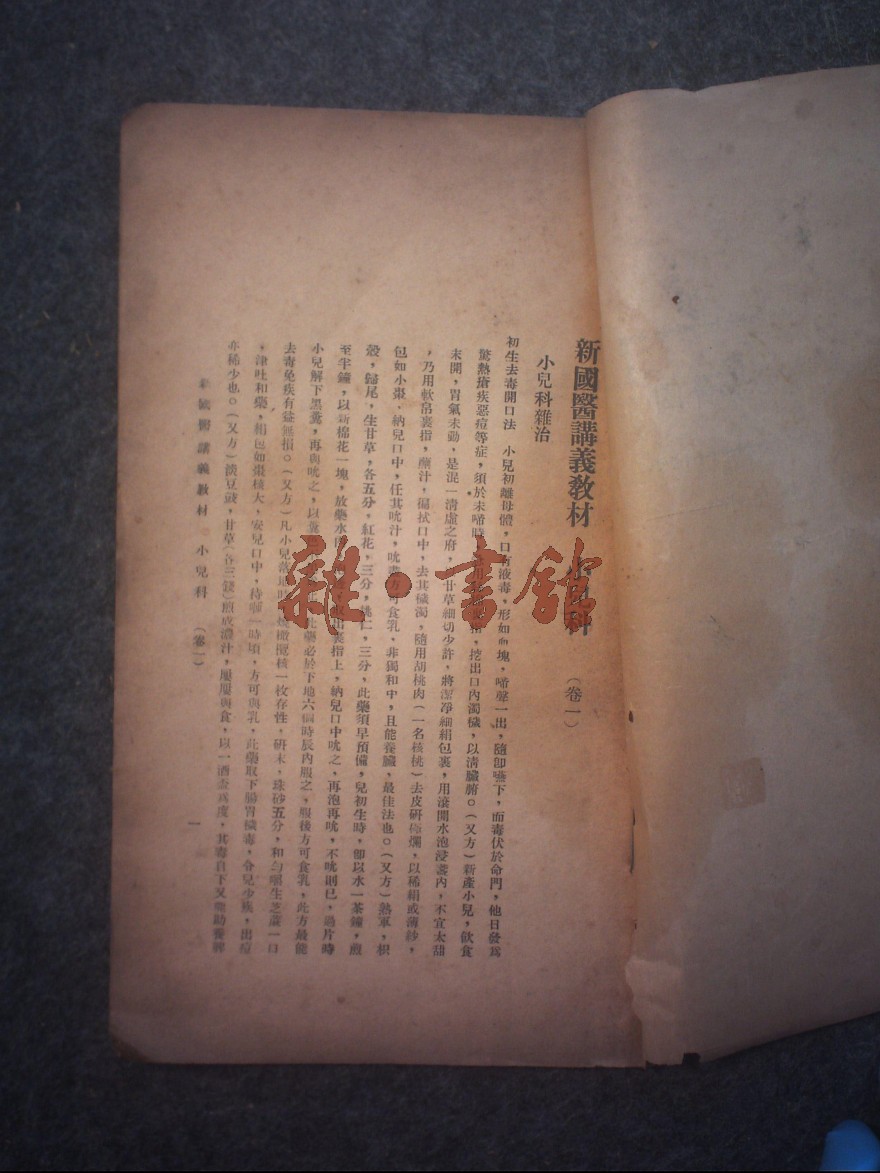 新國醫講義教材　小兒科　（卷一）
小兒科雜治
初生去毒開口法　小兒初離母體，口有液毒，形如血塊，啼聲一出，隨卽嚥下，而毒伏於命門，他日發爲
驚熱瘡疾惡痘等症，須於未啼時，挖出口內濁穢，以清臟腑。（又方）新產小兒，飲食
未開，胃氣未動，是混一清虛之府，甘草細切少許，將潔凈細絹包裹，用滾開水泡浸盞內，不宜太甜
，乃用軟帛裹指，蘸汁，徧拭口中，去其穢濁，隨用胡桃肉（一名核桃）去皮研極爛，以稀絹或薄紗，
包如小棗，納兒口中，任其吮汁，吮盡方可食乳，非獨和中，且能養臟，最佳法也。（又方）熟軍，枳
殼，歸尾，生甘草，各五分，紅花，三分，桃仁，三分，此藥須早預備，兒初生時，卽以水一茶鐘，煎
至半鐘，以新棉花一塊，放藥水出裹指上，納兒口中吮之，再泡再吮，不吮則已，過片時
小兒解下黑糞，再與吮之，以糞此藥必於下地六個時辰內服之，服後方可食乳，此方最能
去毒免疾有益無損。（又方）凡小兒落地時橄欖核一枚存性，研末，珠砂五分，和勻嚼生芝蔴一口
，津吐和藥，絹包如棗核大，安兒口中，待咂一時頃，方可與乳，此藥取下腸胃穢毒，令兒少疾，出痘
亦稀少也。（又方）淡豆豉，甘草（各三錢）煎成濃汁，屢屢與食，以一酒盃爲度，其毒自下又能助養脾
新國醫講義教材　小兒科　（卷一）　一
雜·書館